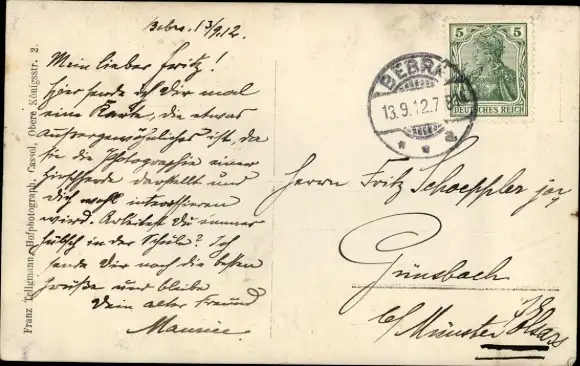 Bebra. 13/9.12.
Mein lieber Fritz!
Hier sende ich Dir mal
eine Karte, die etwas
Außergewöhnliches ist, da
sie die Photographie einer
Hirschherde darstellt und
Dich wohl interessieren
wird. Arbeitest Du immer
hübsch in der Schule? Ich
sende Dir noch die besten
Grüße und bleibe
Dein alter Freund
Maurice.
Franz Tellgmann, Hofphotograph, Cassel, Obere Königsstr. 2.
BEBRA
13.9.12.7
5 5
DEUTSCHES REICH
Herrn Fritz Schoeppler jr.
Günsbach
b/ Münster Elsass